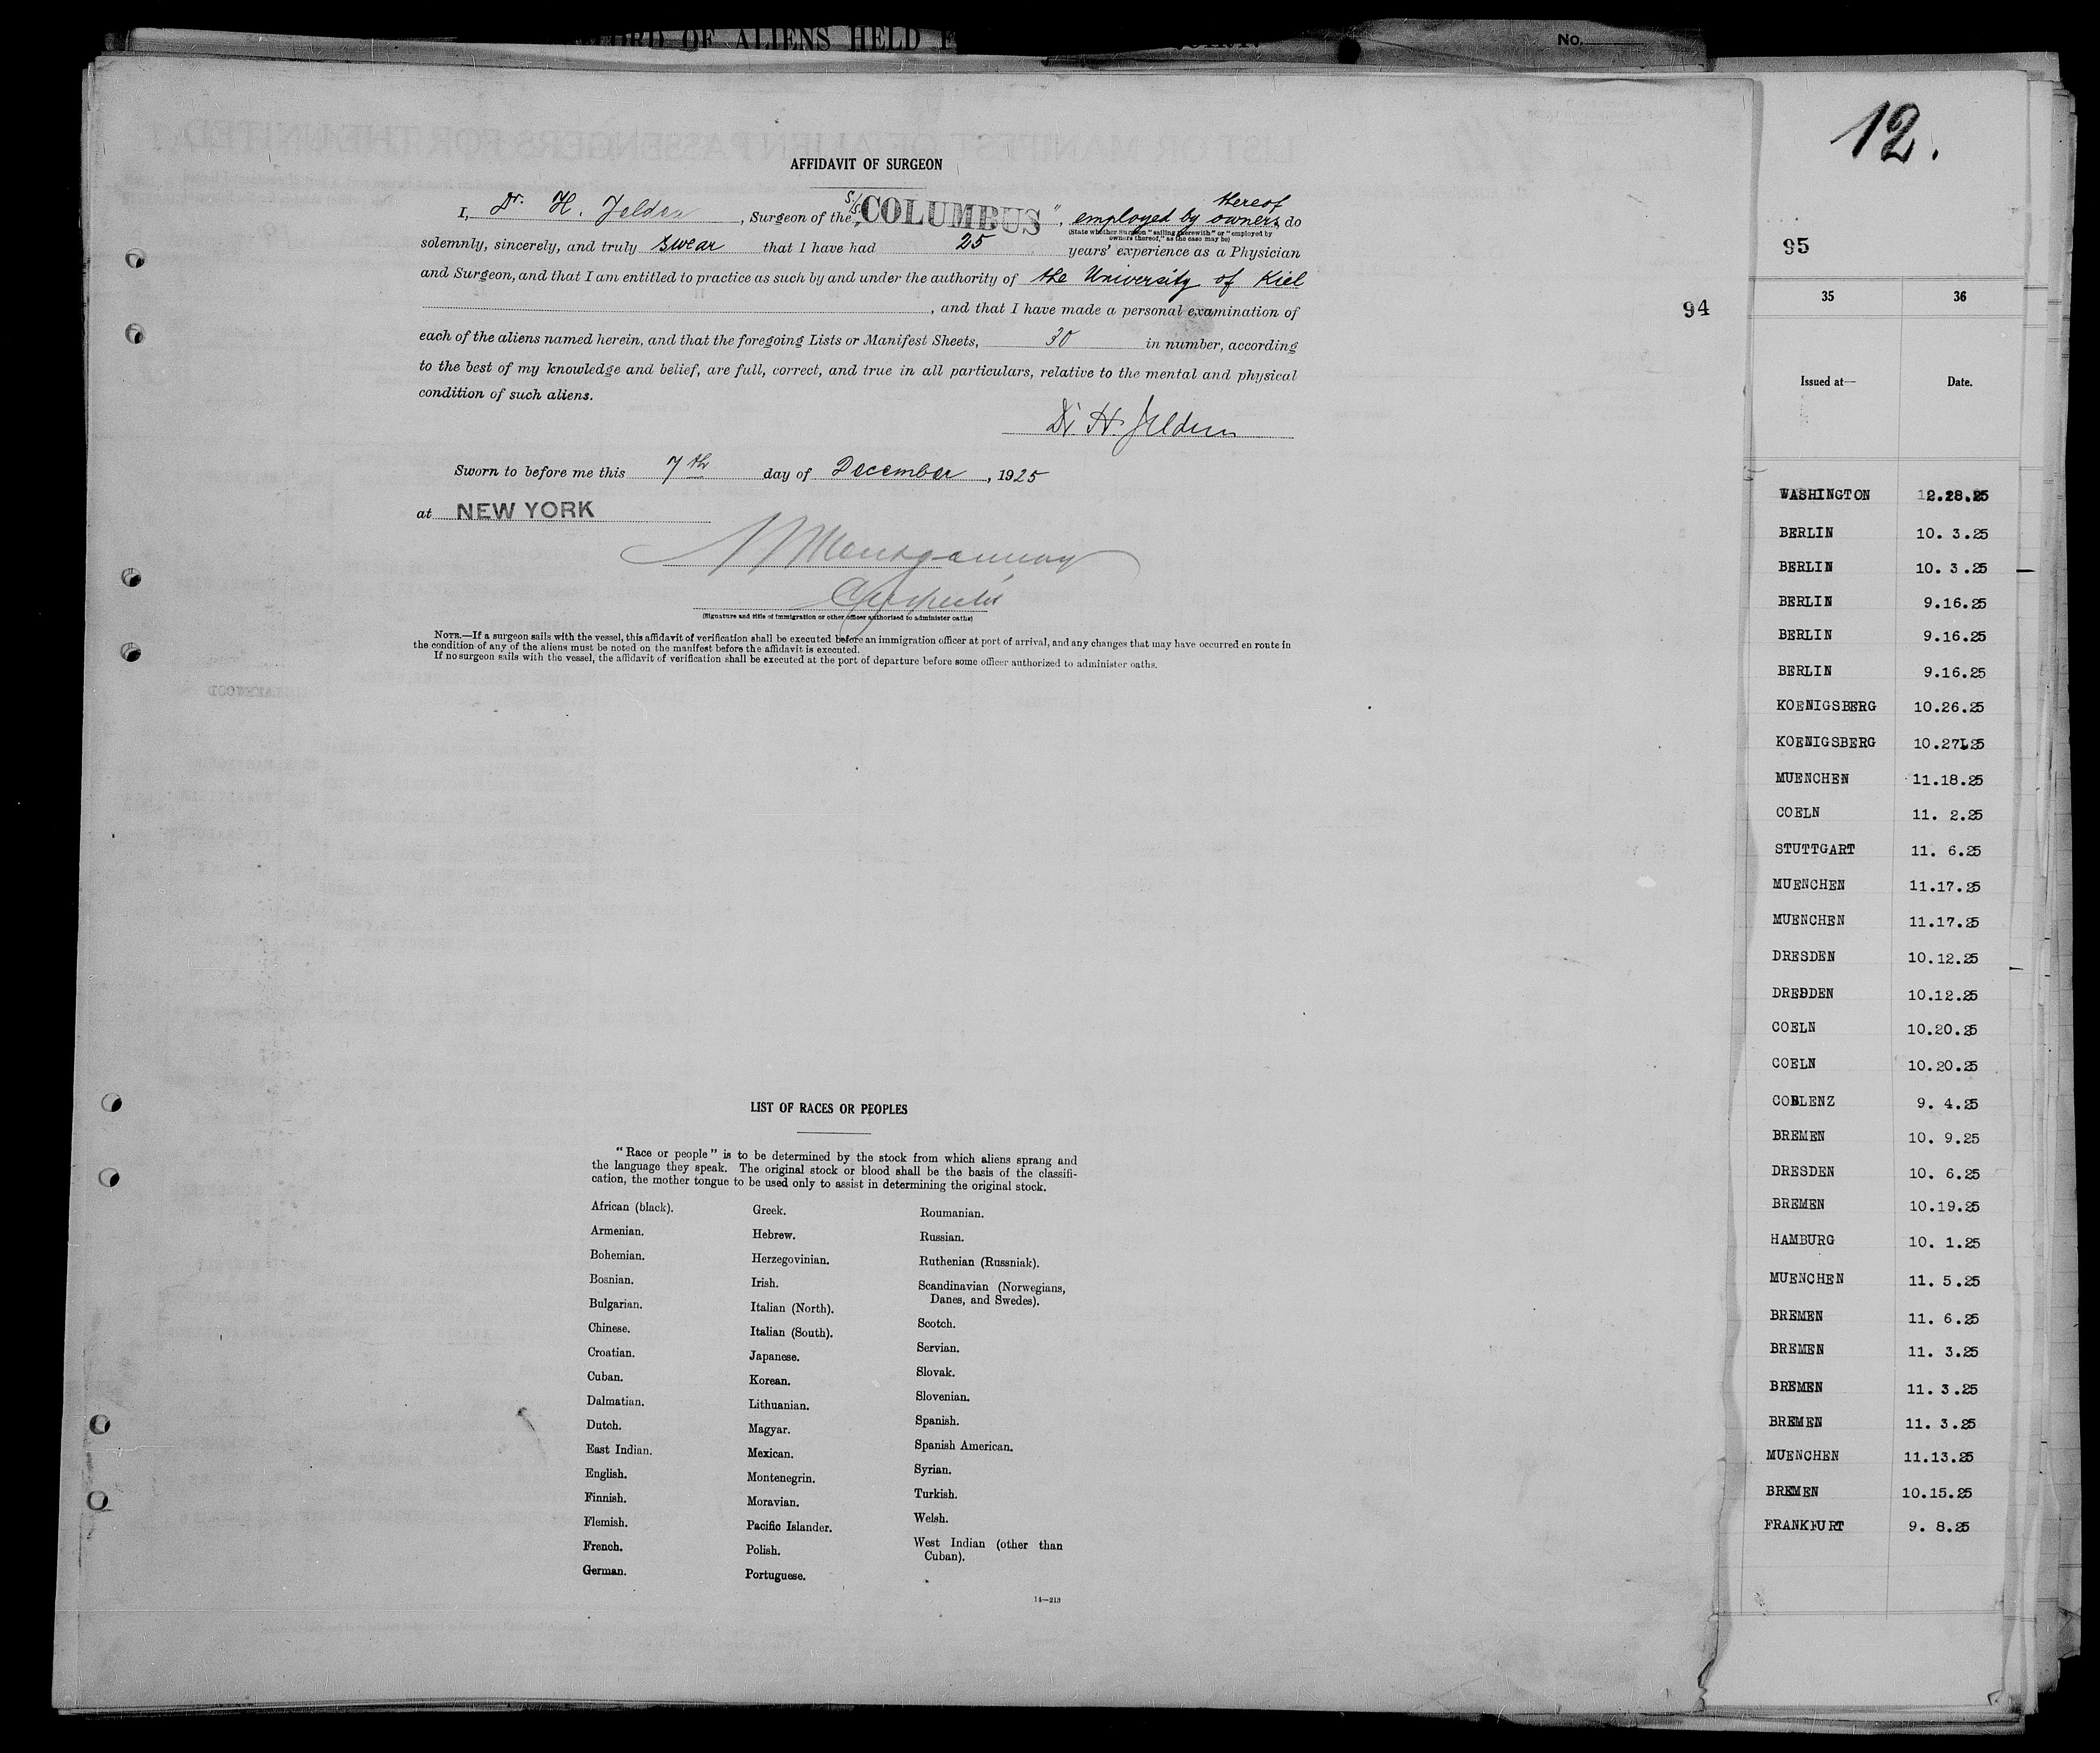 RECORD OF ALIENS HELD F
No.
AFFIDAVIT OF SURGEON
I, Dr. H. Jelden, Surgeon of the S/S. "COLUMBUS", employed by owners thereof, do
(State whether Surgeon "sailing therewith" or "employed by
owners thereof," as the case may be)
solemnly, sincerely, and truly swear that I have had 25 years' experience as a Physician
and Surgeon, and that I am entitled to practice as such by and under the authority of the University of Kiel
, and that I have made a personal examination of
each of the aliens named herein, and that the foregoing Lists or Manifest Sheets, 30 in number, according
to the best of my knowledge and belief, are full, correct, and true in all particulars, relative to the mental and physical
condition of such aliens.
Dr. H. Jelden
Sworn to before me this 7th day of December, 1925
at NEW YORK
Montgomery
(Signature and title of immigration or other officer authorized to administer oaths)
NOTE.—If a surgeon sails with the vessel, this affidavit of verification shall be executed before an immigration officer at port of arrival, and any changes that may have occurred en route in
the condition of any of the aliens must be noted on the manifest before the affidavit is executed.
If no surgeon sails with the vessel, the affidavit of verification shall be executed at the port of departure before some officer authorized to administer oaths.
94
LIST OF RACES OR PEOPLES
"Race or people" is to be determined by the stock from which aliens sprang and
the language they speak. The original stock or blood shall be the basis of the classifi-
cation, the mother tongue to be used only to assist in determining the original stock.
African (black).
Armenian.
Bohemian.
Bosnian.
Bulgarian.
Chinese.
Croatian.
Cuban.
Dalmatian.
Dutch.
East Indian.
English.
Finnish.
Flemish.
French.
German.
Greek.
Hebrew.
Herzegovinian.
Irish.
Italian (North).
Italian (South).
Japanese.
Korean.
Lithuanian.
Magyar.
Mexican.
Montenegrin.
Moravian.
Pacific Islander.
Polish.
Portuguese.
Roumanian.
Russian.
Ruthenian (Russniak).
Scandinavian (Norwegians,
Danes, and Swedes).
Scotch.
Servian.
Slovak.
Slovenian.
Spanish.
Spanish American.
Syrian.
Turkish.
Welsh.
West Indian (other than
Cuban).
14—213
12.
95
35 36
Issued at— Date.
WASHINGTON 12.28.25
BERLIN 10. 3.25
BERLIN 10. 3.25
BERLIN 9.16.25
BERLIN 9.16.25
BERLIN 9.16.25
KOENIGSBERG 10.26.25
KOENIGSBERG 10.27.25
MUENCHEN 11.18.25
COELN 11. 2.25
STUTTGART 11. 6.25
MUENCHEN 11.17.25
MUENCHEN 11.17.25
DRESDEN 10.12.25
DRESDEN 10.12.25
COELN 10.20.25
COELN 10.20.25
COBLENZ 9. 4.25
BREMEN 10. 9.25
DRESDEN 10. 6.25
BREMEN 10.19.25
HAMBURG 10. 1.25
MUENCHEN 11. 5.25
BREMEN 11. 6.25
BREMEN 11. 3.25
BREMEN 11. 3.25
BREMEN 11. 3.25
MUENCHEN 11.13.25
BREMEN 10.15.25
FRANKFURT 9. 8.25